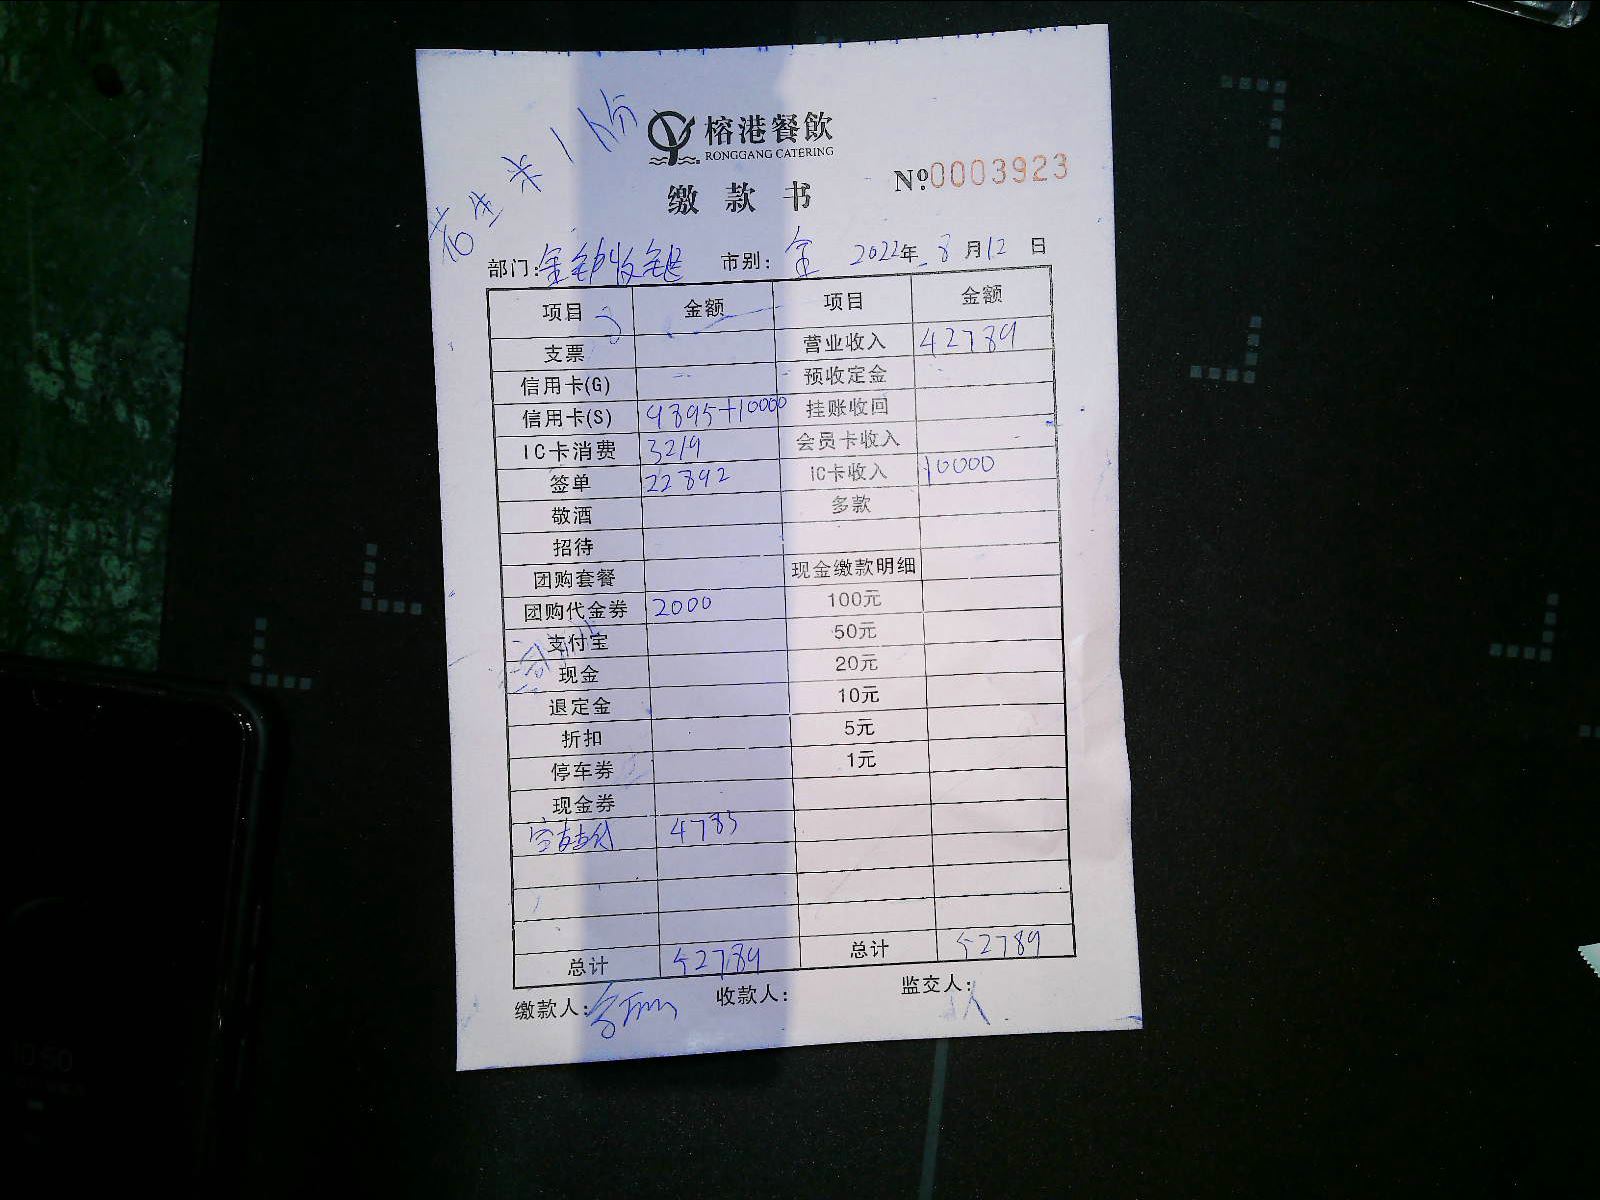 榕港餐飲
RONGGANG CATERING
缴款书
№0003923
部门: 市别:全 2022年8月12日
项目 金额 项目 金额
支票 营业收入 42789
信用卡(G) 预收定金
信用卡(S) 9895+10000 挂账收回
IC卡消费 3219 会员卡收入
签单 22892 IC卡收入 10000
敬酒 多款
招待
团购套餐 现金缴款明细
团购代金券 2000 100元
支付宝 50元
现金 20元
退定金 10元
折扣 5元
停车券 1元
现金券
4783
总计 52789 总计 52789
缴款人: 收款人: 监交人: